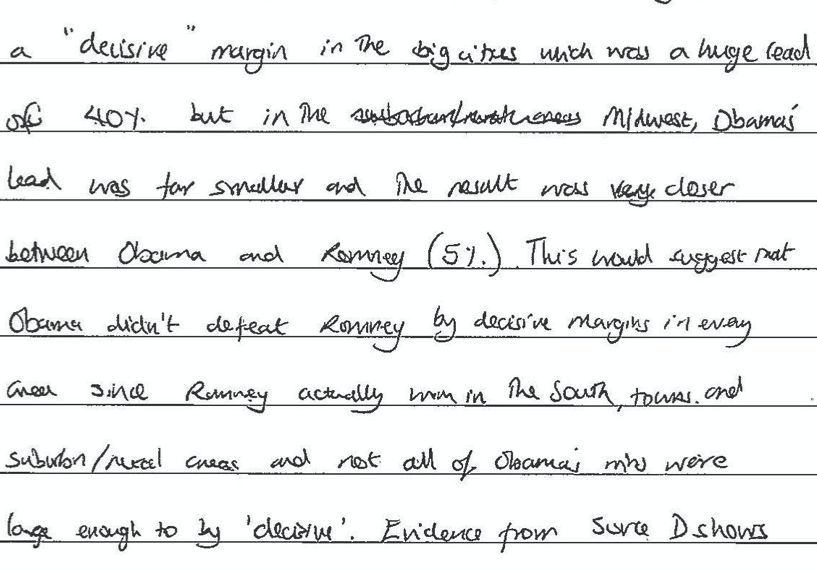 a "decisive" margin in the big cities which was a huge lead
of 40%. but in the Midwest, Obama's
lead was far smaller and the result was very closer
between Obama and Romney (5%). This would suggest that
Obama didn't defeat Romney by decisive margins in every
area since Romney actually won in the South, towns and
suburbon/rural areas and not all of Obama's wins were
large enough to by 'decisive'. Evidence from Surce D shows